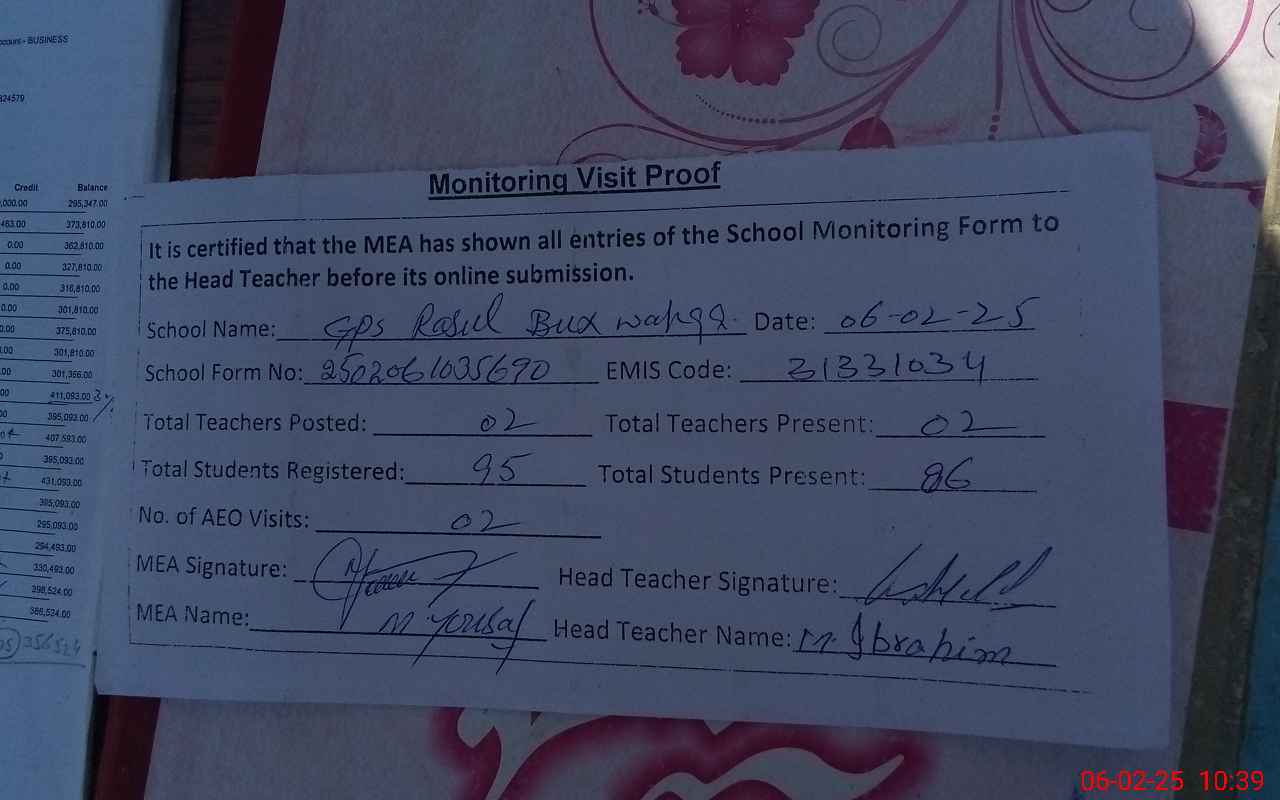 ccount - BUSINESS
324579
Credit Balance
,000.00 295,347.00
463.00 373,810.00
0.00 362,810.00
0.00 327,810.00
0.00 316,810.00
0.00 301,810.00
0.00 375,810.00
.00 301,810.00
.00 301,356.00
00 411,093.00
00 395,093.00
407,593.00
395,093.00
431,093.00
395,093.00
295,093.00
294,493.00
330,493.00
398,524.00
386,524.00
356524
Monitoring Visit Proof
It is certified that the MEA has shown all entries of the School Monitoring Form to
the Head Teacher before its online submission.
School Name: GPS Rasul Bux wahga Date: 06-02-25
School Form No: 2502061035690 EMIS Code: 31331034
Total Teachers Posted: 02 Total Teachers Present: 02
Total Students Registered: 95 Total Students Present: 86
No. of AEO Visits: 02
MEA Signature: Head Teacher Signature:
MEA Name: M Yousaf Head Teacher Name: M. Ibrahim
06-02-25 10:39